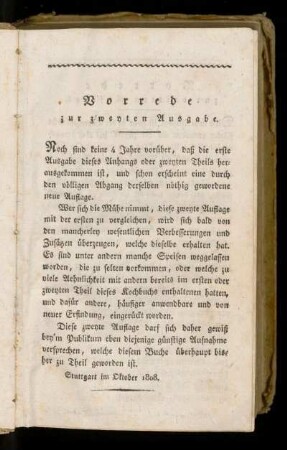 Vorrede
zur zweyten Ausgabe.
Noch sind keine 4 Jahre vorüber, daß die erste
Ausgabe dieses Anhangs oder zweyten Theils her-
ausgekommen ist, und schon erscheint eine durch
den völligen Abgang derselben nöthig gewordene
neue Auflage.
Wer sich die Mühe nimmt, diese zweyte Auflage
mit der ersten zu vergleichen, wird sich bald von
den mancherley wesentlichen Verbesserungen und
Zusätzen überzeugen, welche dieselbe erhalten hat.
Es sind unter andern manche Speisen weggelassen
worden, die zu selten vorkommen, oder welche zu
viele Aehnlichkeit mit andern bereits im ersten oder
zweyten Theil dieses Kochbuchs enthaltenen hatten,
und dafür andere, häufiger anwendbare und von
neuer Erfindung, eingerückt worden.
Diese zweyte Auflage darf sich daher gewiß
bey'm Publikum eben diejenige günstige Aufnahme
versprechen, welche diesem Buche überhaupt bis-
her zu Theil geworden ist.
Stuttgart im Oktober 1808.